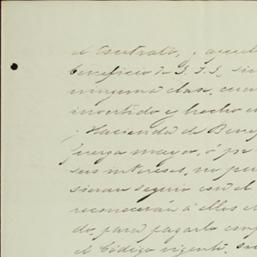 el Contrato, y queda
beneficio de S. F. S., sin
ninguna clase, cuan
invertido y hecho en
y Hacienda de Bene
fuerza mayor, ó po
sus intereses, no pu
sieran seguir con el
reconocerán á ellos el
do, para pagarlo en
el Código vigente,